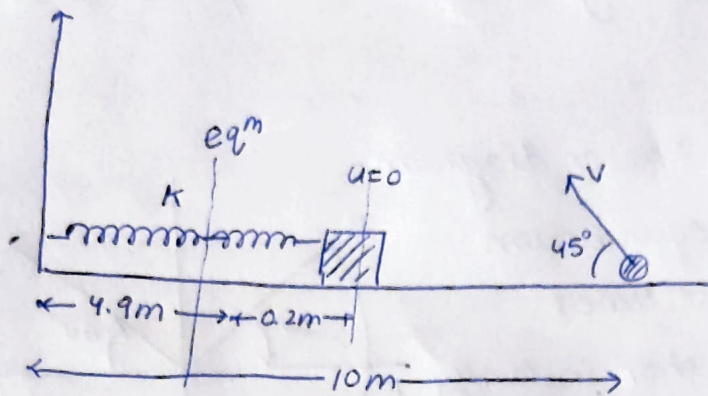 eqᵐ
K
u=0
v
45°
4.9m
0.2m
10m